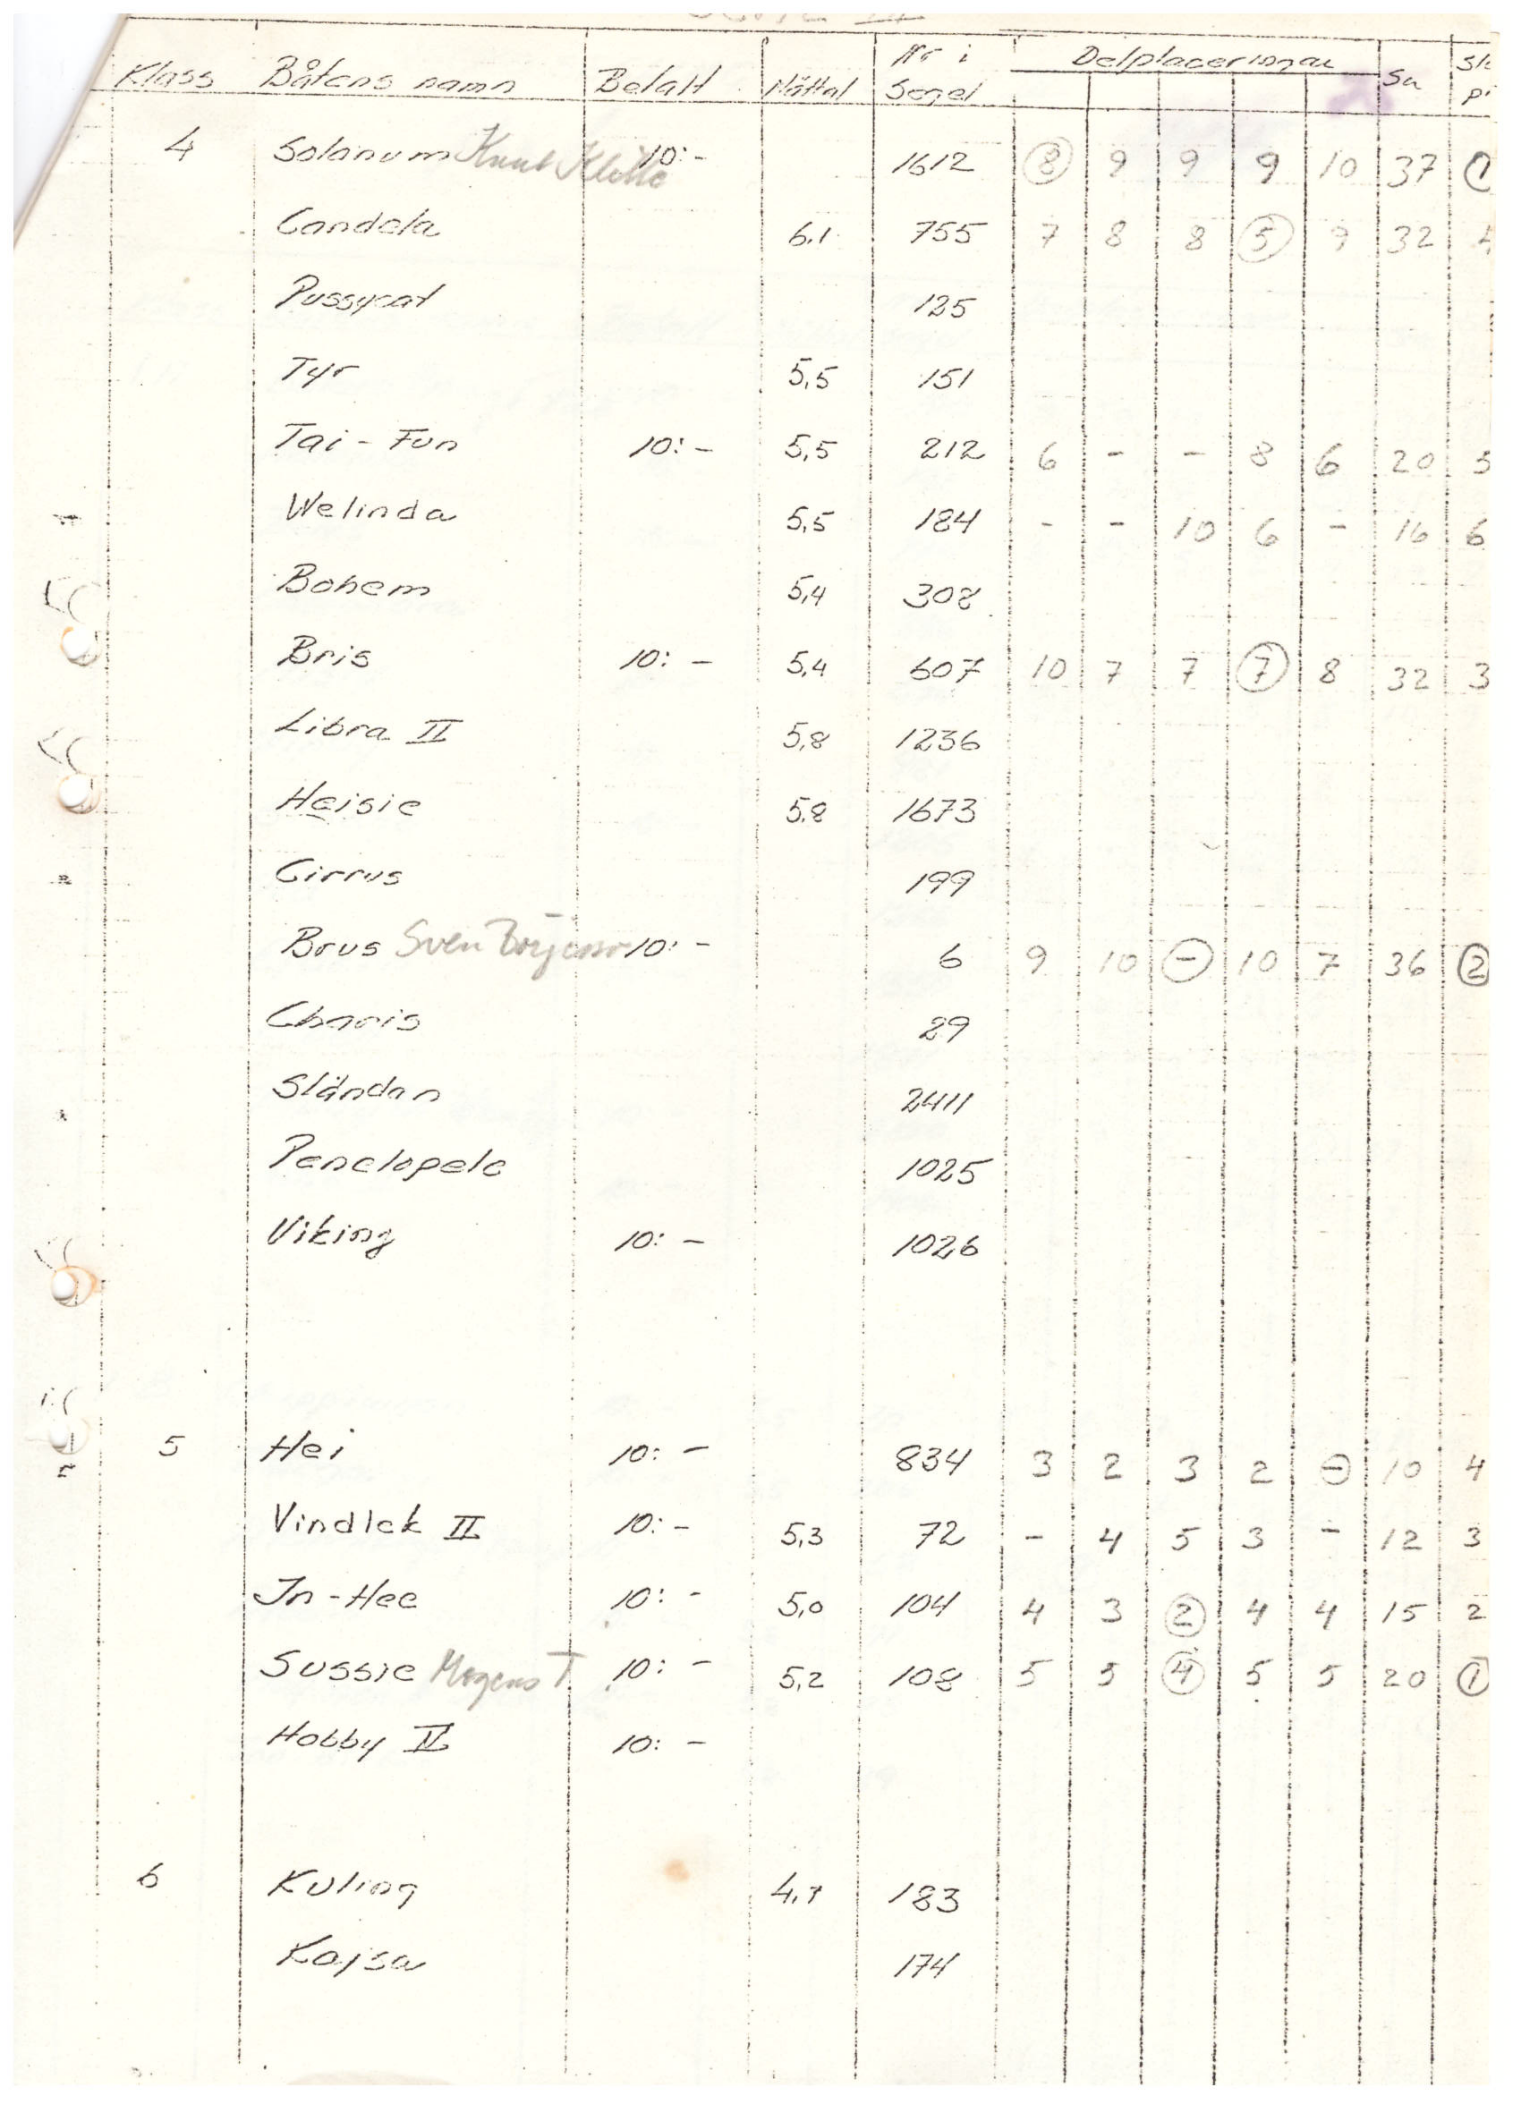 Klass Båtens namn Betalt Mättal Nr i Segel Delplaceringar Su
4 Solanum Knut 10:- 1612 8 9 9 9 10 37 1
Candela 6.1 755 7 8 8 5 9 32 4
Pussycat 125
Tyr 5,5 151
Tai-Fun 10:- 5,5 212 6 - - 8 6 20 5
Welinda 5,5 184 - - 10 6 - 16 6
Bohem 5,4 308
Bris 10:- 5,4 607 10 7 7 7 8 32 3
Libra II 5,8 1236
Heisie 5.8 1673
Cirrus 199
Brus Sven Börjesson 10:- 6 9 10 - 10 7 36 2
Charis 29
Sländan 2411
Penelopele 1025
Viking 10:- 1026
5 Hei 10:- 834 3 2 3 2 - 10 4
Vindlek II 10:- 5,3 72 - 4 5 3 - 12 3
In-Hee 10:- 5,0 104 4 3 2 4 4 15 2
Sussie Mogens T 10:- 5,2 108 5 5 4 5 5 20 1
Hobby II 10:-
6 Kuling 4,7 183
Kajsa 174